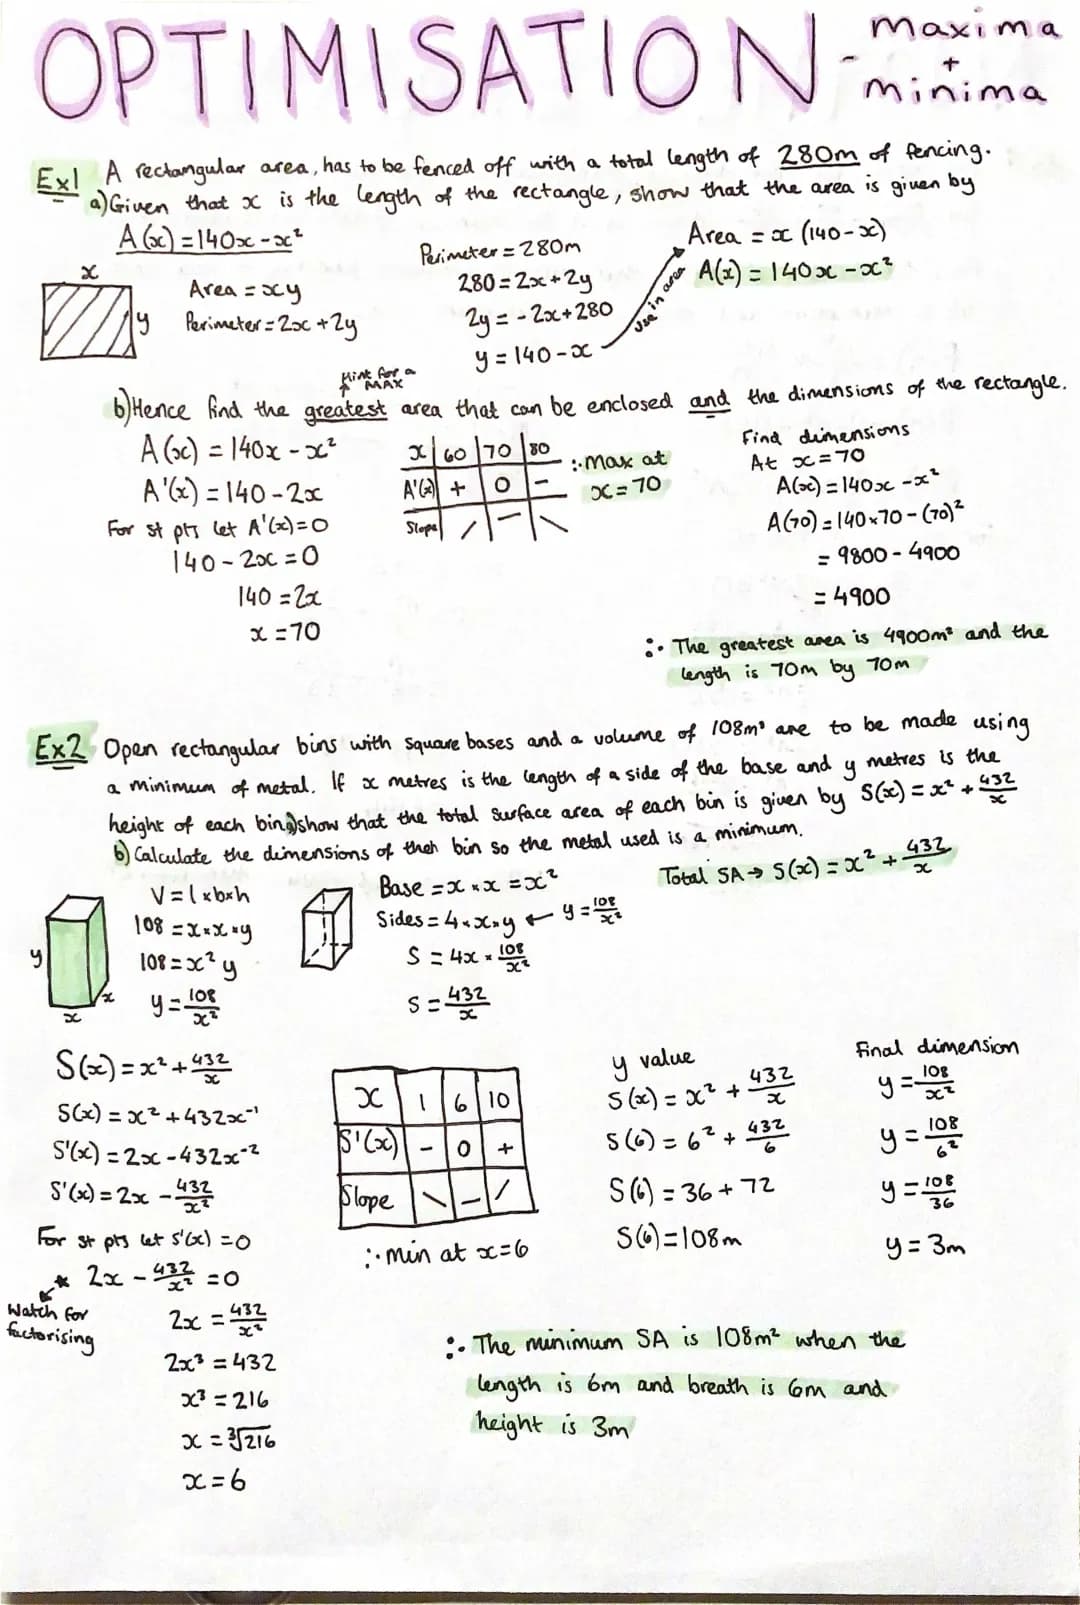 OPTIMISATION - maxima + minima
Ex1 A rectangular area, has to be fenced off with a total length of 280m of fencing.
a) Given that x is the length of the rectangle, show that the area is given by
A(x) = 140x - x²
x
y
Area = xy
Perimeter = 2x + 2y
Perimeter = 280m
280 = 2x + 2y
2y = -2x + 280
y = 140 - x
use in area
Area = x (140 - x)
A(x) = 140x - x²
Hint for a MAX
b) Hence find the greatest area that can be enclosed and the dimensions of the rectangle.
A(x) = 140x - x²
A'(x) = 140 - 2x
For st pts let A'(x) = 0
140 - 2x = 0
140 = 2x
x = 70
x | 60 | 70 | 80
A'(x) | + | 0 | -
Slope | / | — | \
∴ Max at
x = 70
Find dimensions
At x = 70
A(x) = 140x - x²
A(70) = 140 × 70 - (70)²
= 9800 - 4900
= 4900
∴ The greatest area is 4900m² and the
length is 70m by 70m
Ex2 Open rectangular bins with square bases and a volume of 108m³ are to be made using
a minimum of metal. If x metres is the length of a side of the base and y metres is the
height of each bin a) show that the total surface area of each bin is given by S(x) = x² + 432/x
b) Calculate the dimensions of theh bin so the metal used is a minimum.
y
x
x
V = l×b×h
108 = x × x × y
108 = x² y
y = 108/x²
Base = x × x = x²
Sides = 4 × x × y ← y = 108/x²
S = 4x × 108/x²
S = 432/x
Total SA → S(x) = x² + 432/x
S(x) = x² + 432/x
S(x) = x² + 432x⁻¹
S'(x) = 2x - 432x⁻²
S'(x) = 2x - 432/x²
For st pts let S'(x) = 0
* 2x - 432/x² = 0
Watch for
factorising
2x = 432/x²
2x³ = 432
x³ = 216
x = ³√216
x = 6
x | 1 | 6 | 10
S'(x) | - | 0 | +
Slope | \ | — | /
∴ min at x = 6
y value
S(x) = x² + 432/x
S(6) = 6² + 432/6
S(6) = 36 + 72
S(6) = 108m
Final dimension
y = 108/x²
y = 108/6²
y = 108/36
y = 3m
∴ The minimum SA is 108m² when the
length is 6m and breath is 6m and
height is 3m